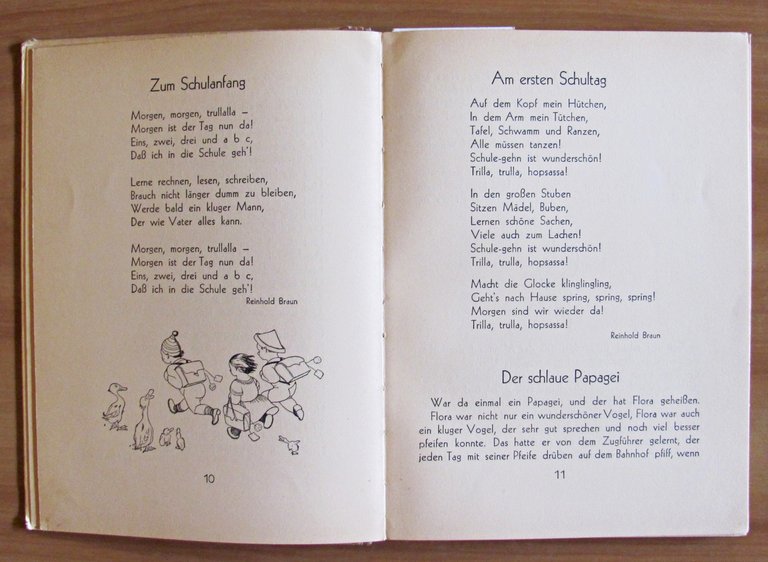 Zum Schulanfang
Morgen, morgen, trullalla –
Morgen ist der Tag nun da!
Eins, zwei, drei und a b c,
Daß ich in die Schule geh'!
Lerne rechnen, lesen, schreiben,
Brauch nicht länger dumm zu bleiben,
Werde bald ein kluger Mann,
Der wie Vater alles kann.
Morgen, morgen, trullalla –
Morgen ist der Tag nun da!
Eins, zwei, drei und a b c,
Daß ich in die Schule geh'!
Reinhold Braun
10
Am ersten Schultag
Auf dem Kopf mein Hütchen,
In dem Arm mein Tütchen,
Tafel, Schwamm und Ranzen,
Alle müssen tanzen!
Schule-gehn ist wunderschön!
Trilla, trulla, hopsassa!
In den großen Stuben
Sitzen Mädel, Buben,
Lernen schöne Sachen,
Viele auch zum Lachen!
Schule-gehn ist wunderschön!
Trilla, trulla, hopsassa!
Macht die Glocke klinglingling,
Geht's nach Hause spring, spring, spring!
Morgen sind wir wieder da!
Trilla, trulla, hopsassa!
Reinhold Braun
Der schlaue Papagei
War da einmal ein Papagei, und der hat Flora geheißen.
Flora war nicht nur ein wunderschöner Vogel, Flora war auch
ein kluger Vogel, der sehr gut sprechen und noch viel besser
pfeifen konnte. Das hatte er von dem Zugführer gelernt, der
jeden Tag mit seiner Pfeife drüben auf dem Bahnhof pfiff, wenn
11